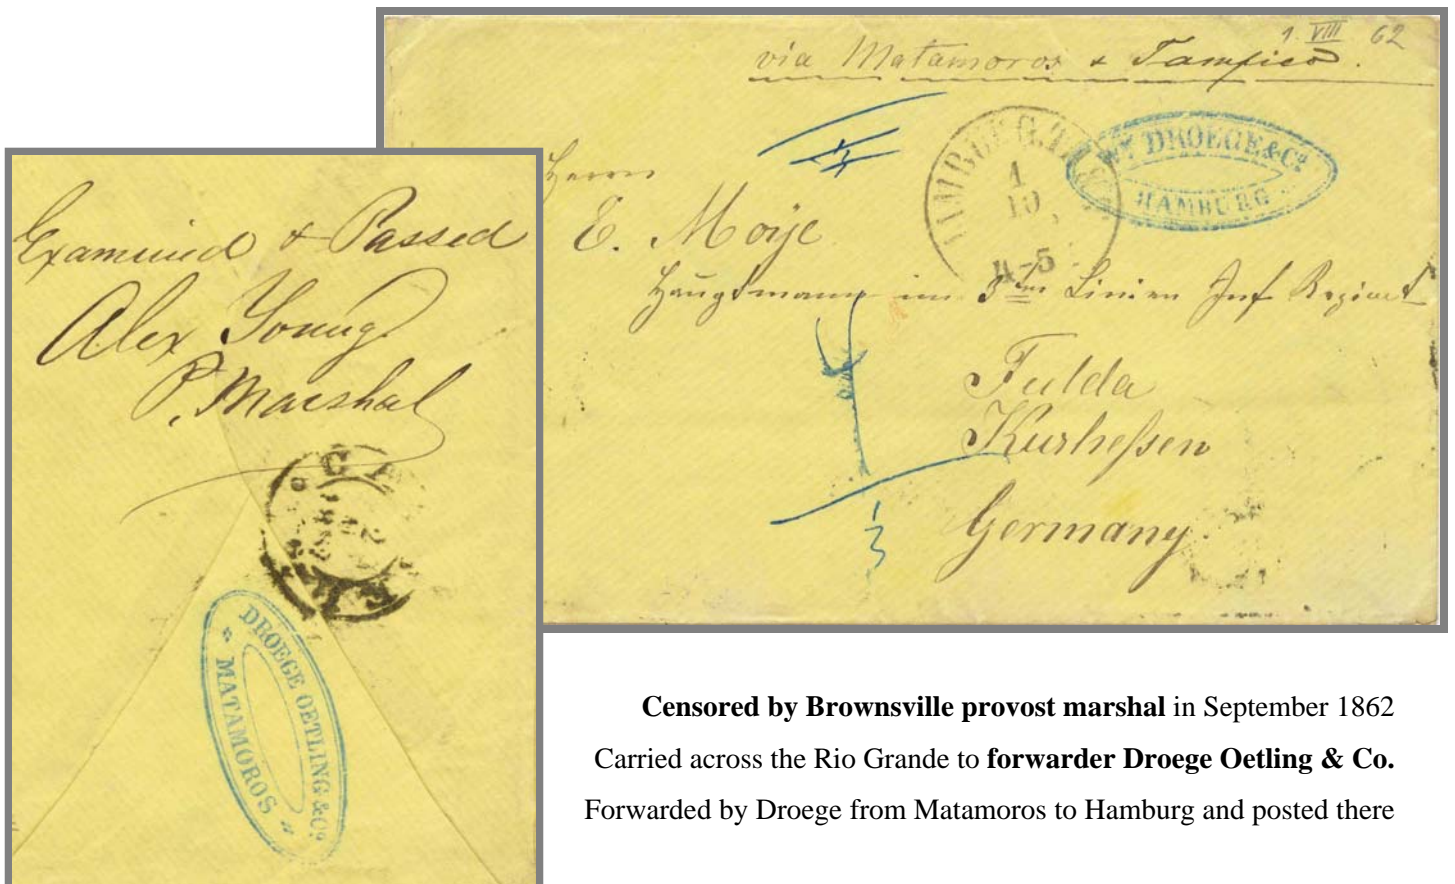 1. VIII 62
via Matamoros & Tampico.
WM DROEGE & Co
HAMBURG
HAMBURG. TH
1
10
4-5
Herrn
E. Moije
Hauptmann im 3ten Linien Inf Regiment
Fulda
Kurhessen
Germany.
Examined & Passed
Alex Young
P. Marshal
DROEGE OETLING & Co
MATAMOROS
Censored by Brownsville provost marshal in September 1862
Carried across the Rio Grande to forwarder Droege Oetling & Co.
Forwarded by Droege from Matamoros to Hamburg and posted there